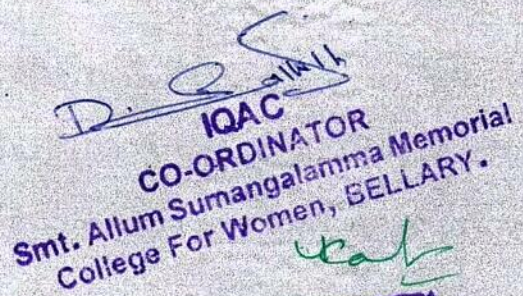 IQAC
CO-ORDINATOR
Smt. Allum Sumangalamma Memorial
College For Women, BELLARY.